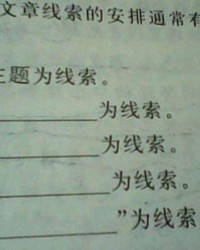 文章线索的安排通常有
主题为线索。
为线索。
为线索。
为线索。
”为线索